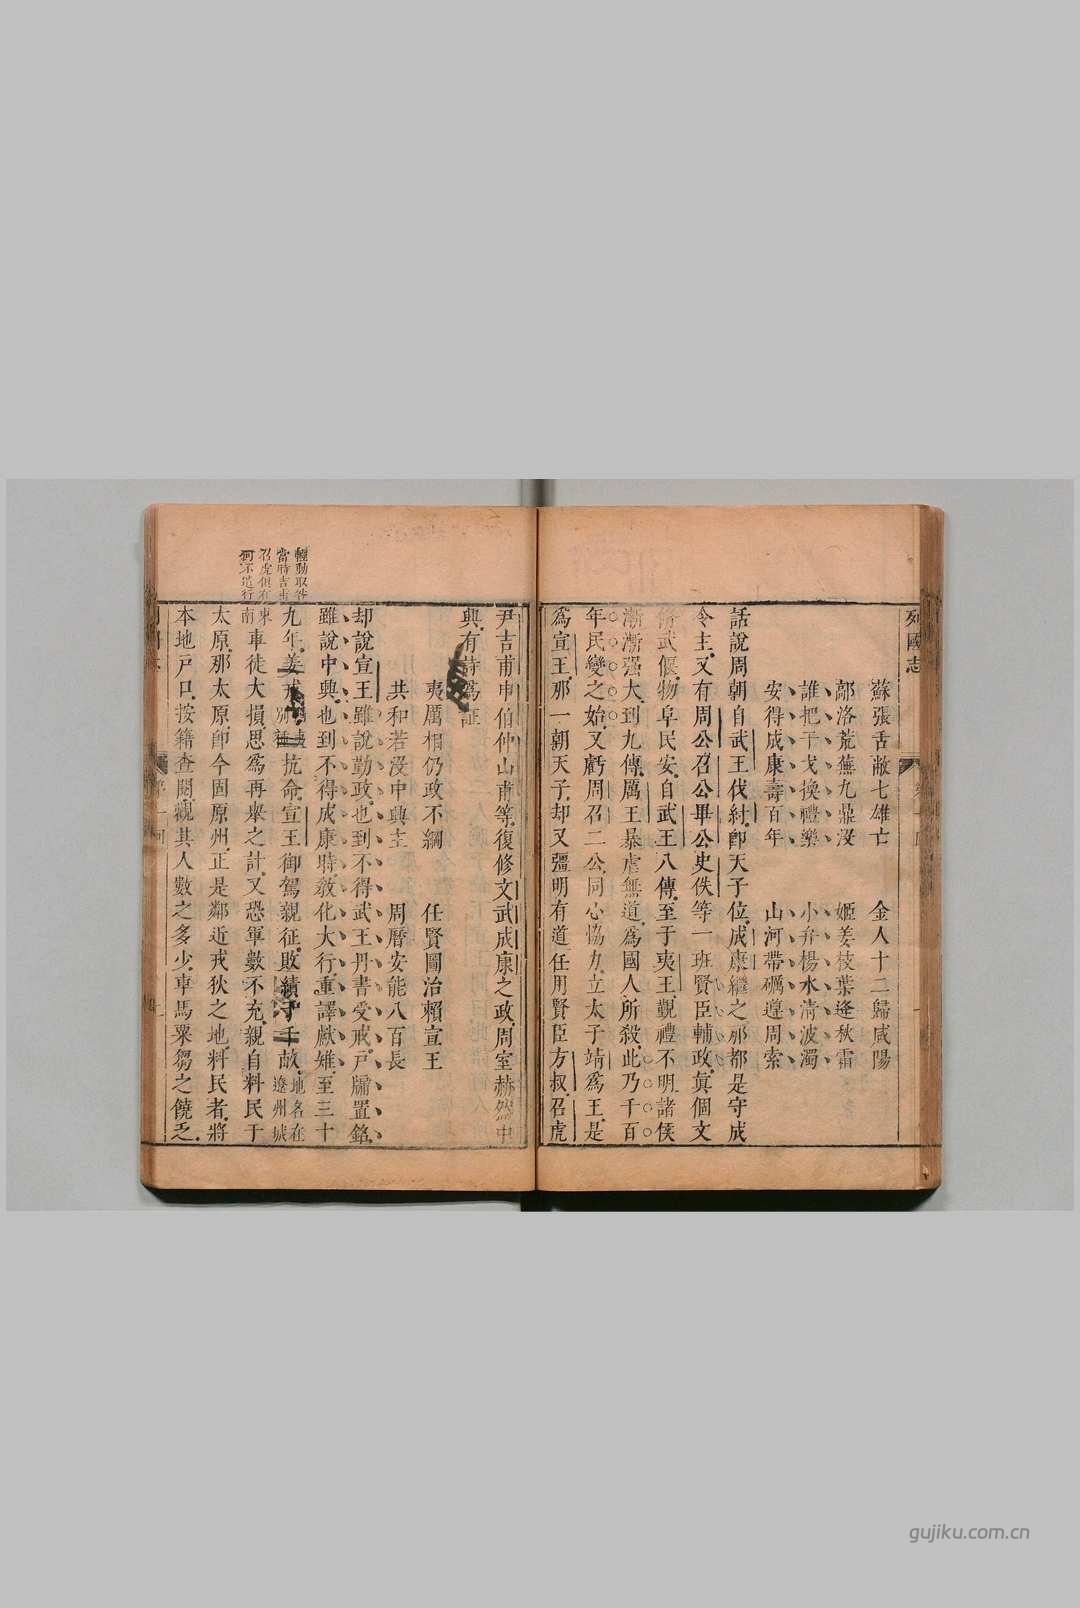 列國志
蘇張舌敝七雄亡　金人十二歸咸陽
鄗洛荒蕪九鼎沒　姬姜枝葉逢秋霜
誰把干戈換禮樂　小弁楊水清波濁
安得成康壽百年　山河帶礪遵周索
話說周朝自武王伐紂卽天子位成康繼之那都是守成
令主又有周公召公畢公史佚等一班賢臣輔政眞個文
脩武偃物阜民安自武王八傳至于夷王覲禮不明諸侯
漸漸强大到九傳厲王暴虐無道爲國人所殺此乃千百
年民變之始又虧周召二公同心協力立太子靖爲王是
爲宣王那一朝天子却又彊明有道任用賢臣方叔召虎
尹吉甫申伯仲山甫等復修文武成康之政周室赫然中
興有詩爲証
夷厲相仍政不綱　任賢圖治賴宣王
共和若沒中興主　周曆安能八百長
却說宣王雖說勤政也到不得武王丹書受戒戶牖置銘
雖說中興也到不得成康時敎化大行重譯獻雉至三十
輕動取咎
當時吉甫
召虎俱在
何不道行
九年姜戎別種抗命宣王御駕親征敗績于千畝地名在遼州城
東南車徒大損思爲再舉之計又恐軍數不充親自料民于
太原那太原卽今固原州正是鄰近戎狄之地料民者將
本地戶口按籍查閱觀其人數之多少車馬粟芻之饒乏
gujiku.com.cn